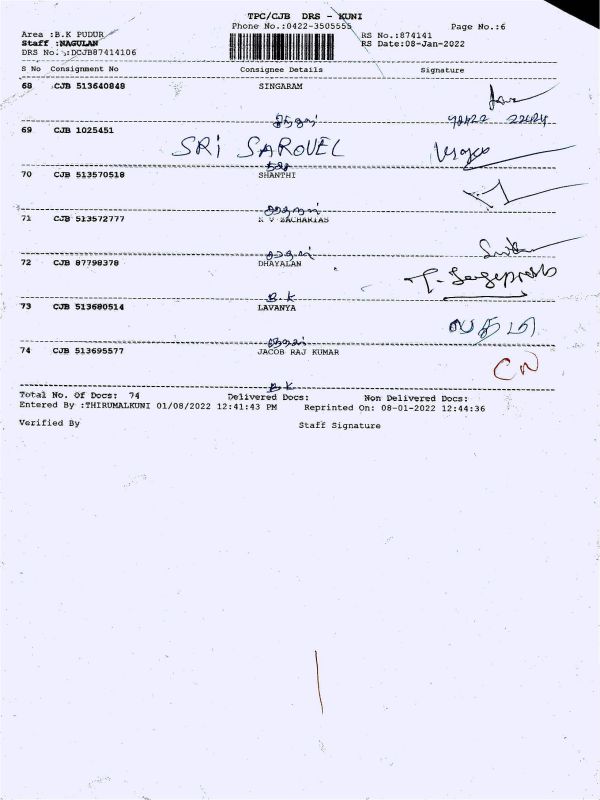 TPC/CJB DRS - KUNI
Phone No.:0422-3505555 Page No.:6
Area :B.K PUDUR RS No.:874141
Staff :NAGULAN RS Date:08-Jan-2022
DRS No. :DCJB87414106
S No Consignment No Consignee Details Signature
68 CJB 513640848 SINGARAM
69 CJB 1025451
SRI SAROVEL
70 CJB 513570518 SHANTHI
71 CJB 513572777 K V ZACHARIAS
72 CJB 87798378 DHAYALAN
B.K
73 CJB 513680514 LAVANYA
74 CJB 513695577 JACOB RAJ KUMAR
CN
B.K
Total No. Of Docs: 74 Delivered Docs: Non Delivered Docs:
Entered By :THIRUMALKUNI 01/08/2022 12:41:43 PM Reprinted On: 08-01-2022 12:44:36
Verified By Staff Signature